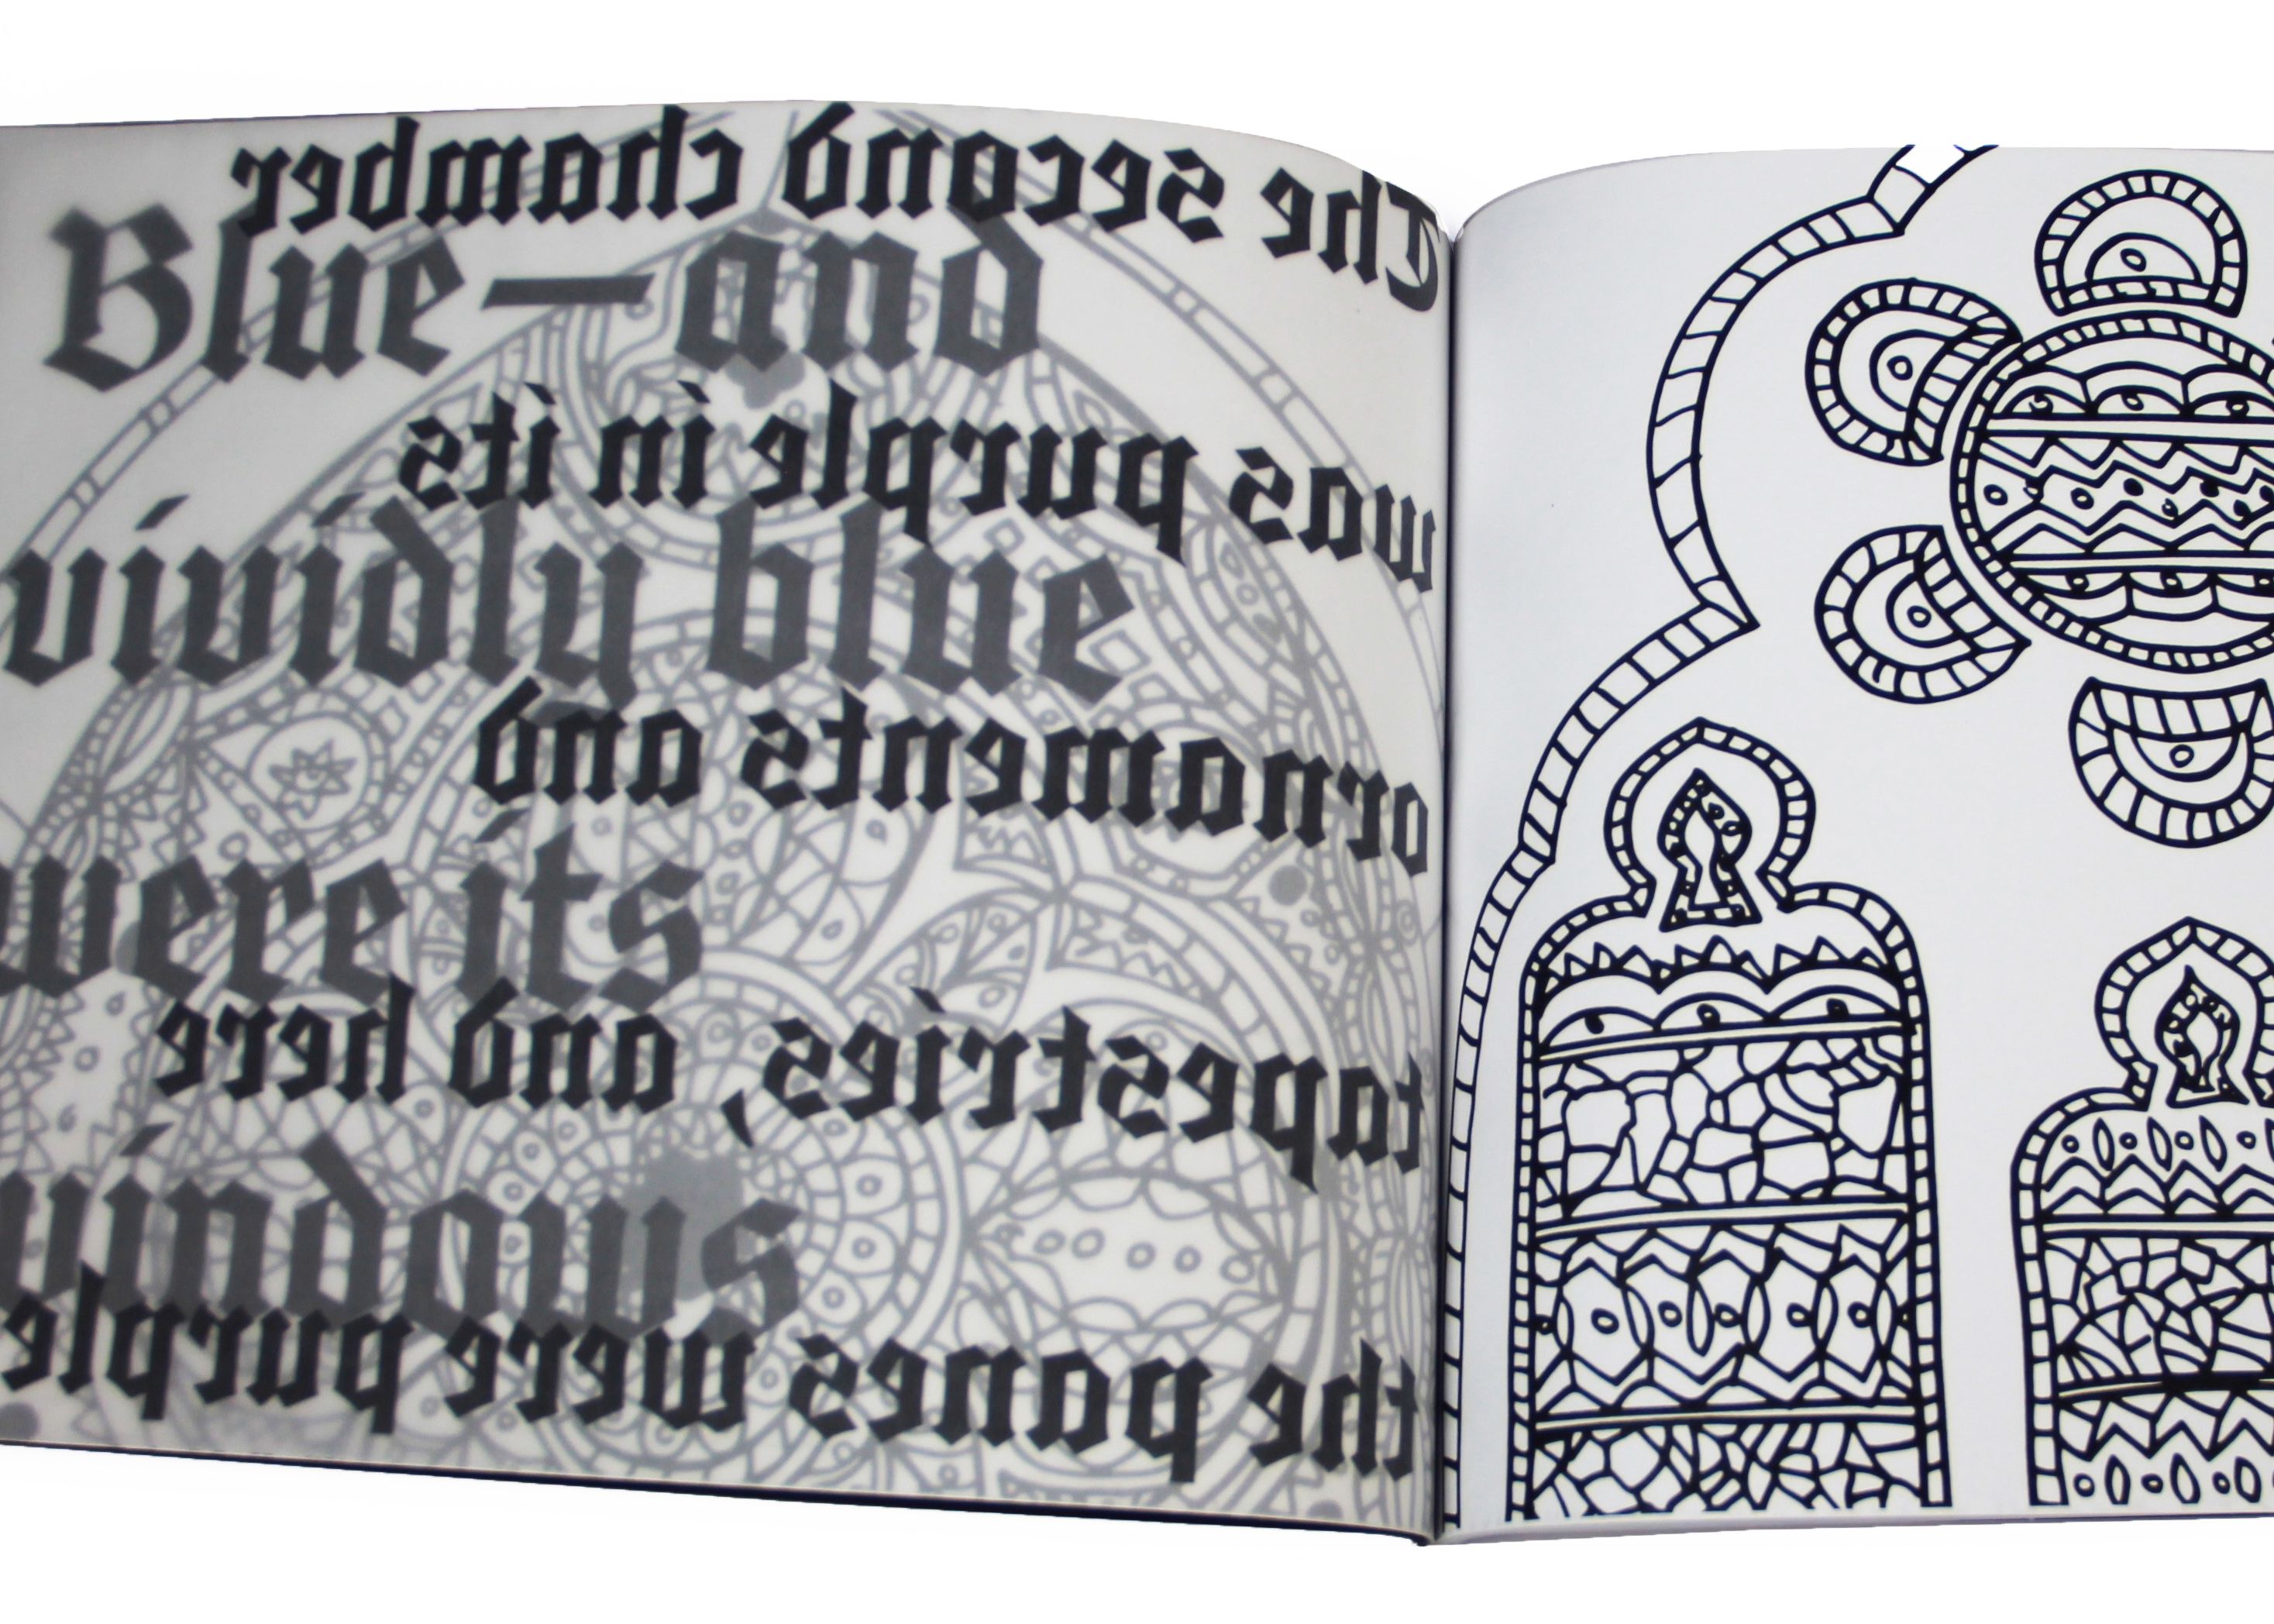 The second chamber
Blue—and
was purple in its
vividly blue
ornaments and
were its
tapestries, and here
windows
the panes were purple